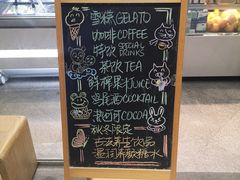 雪糕GELATO
咖啡COFFEE
特饮 SPECIAL DRINKS
茶饮 TEA
鲜榨果汁JUICE
鸡尾酒COCKTAIL
热可可COCOA
秋冬限定
古法养生饮品
糖水